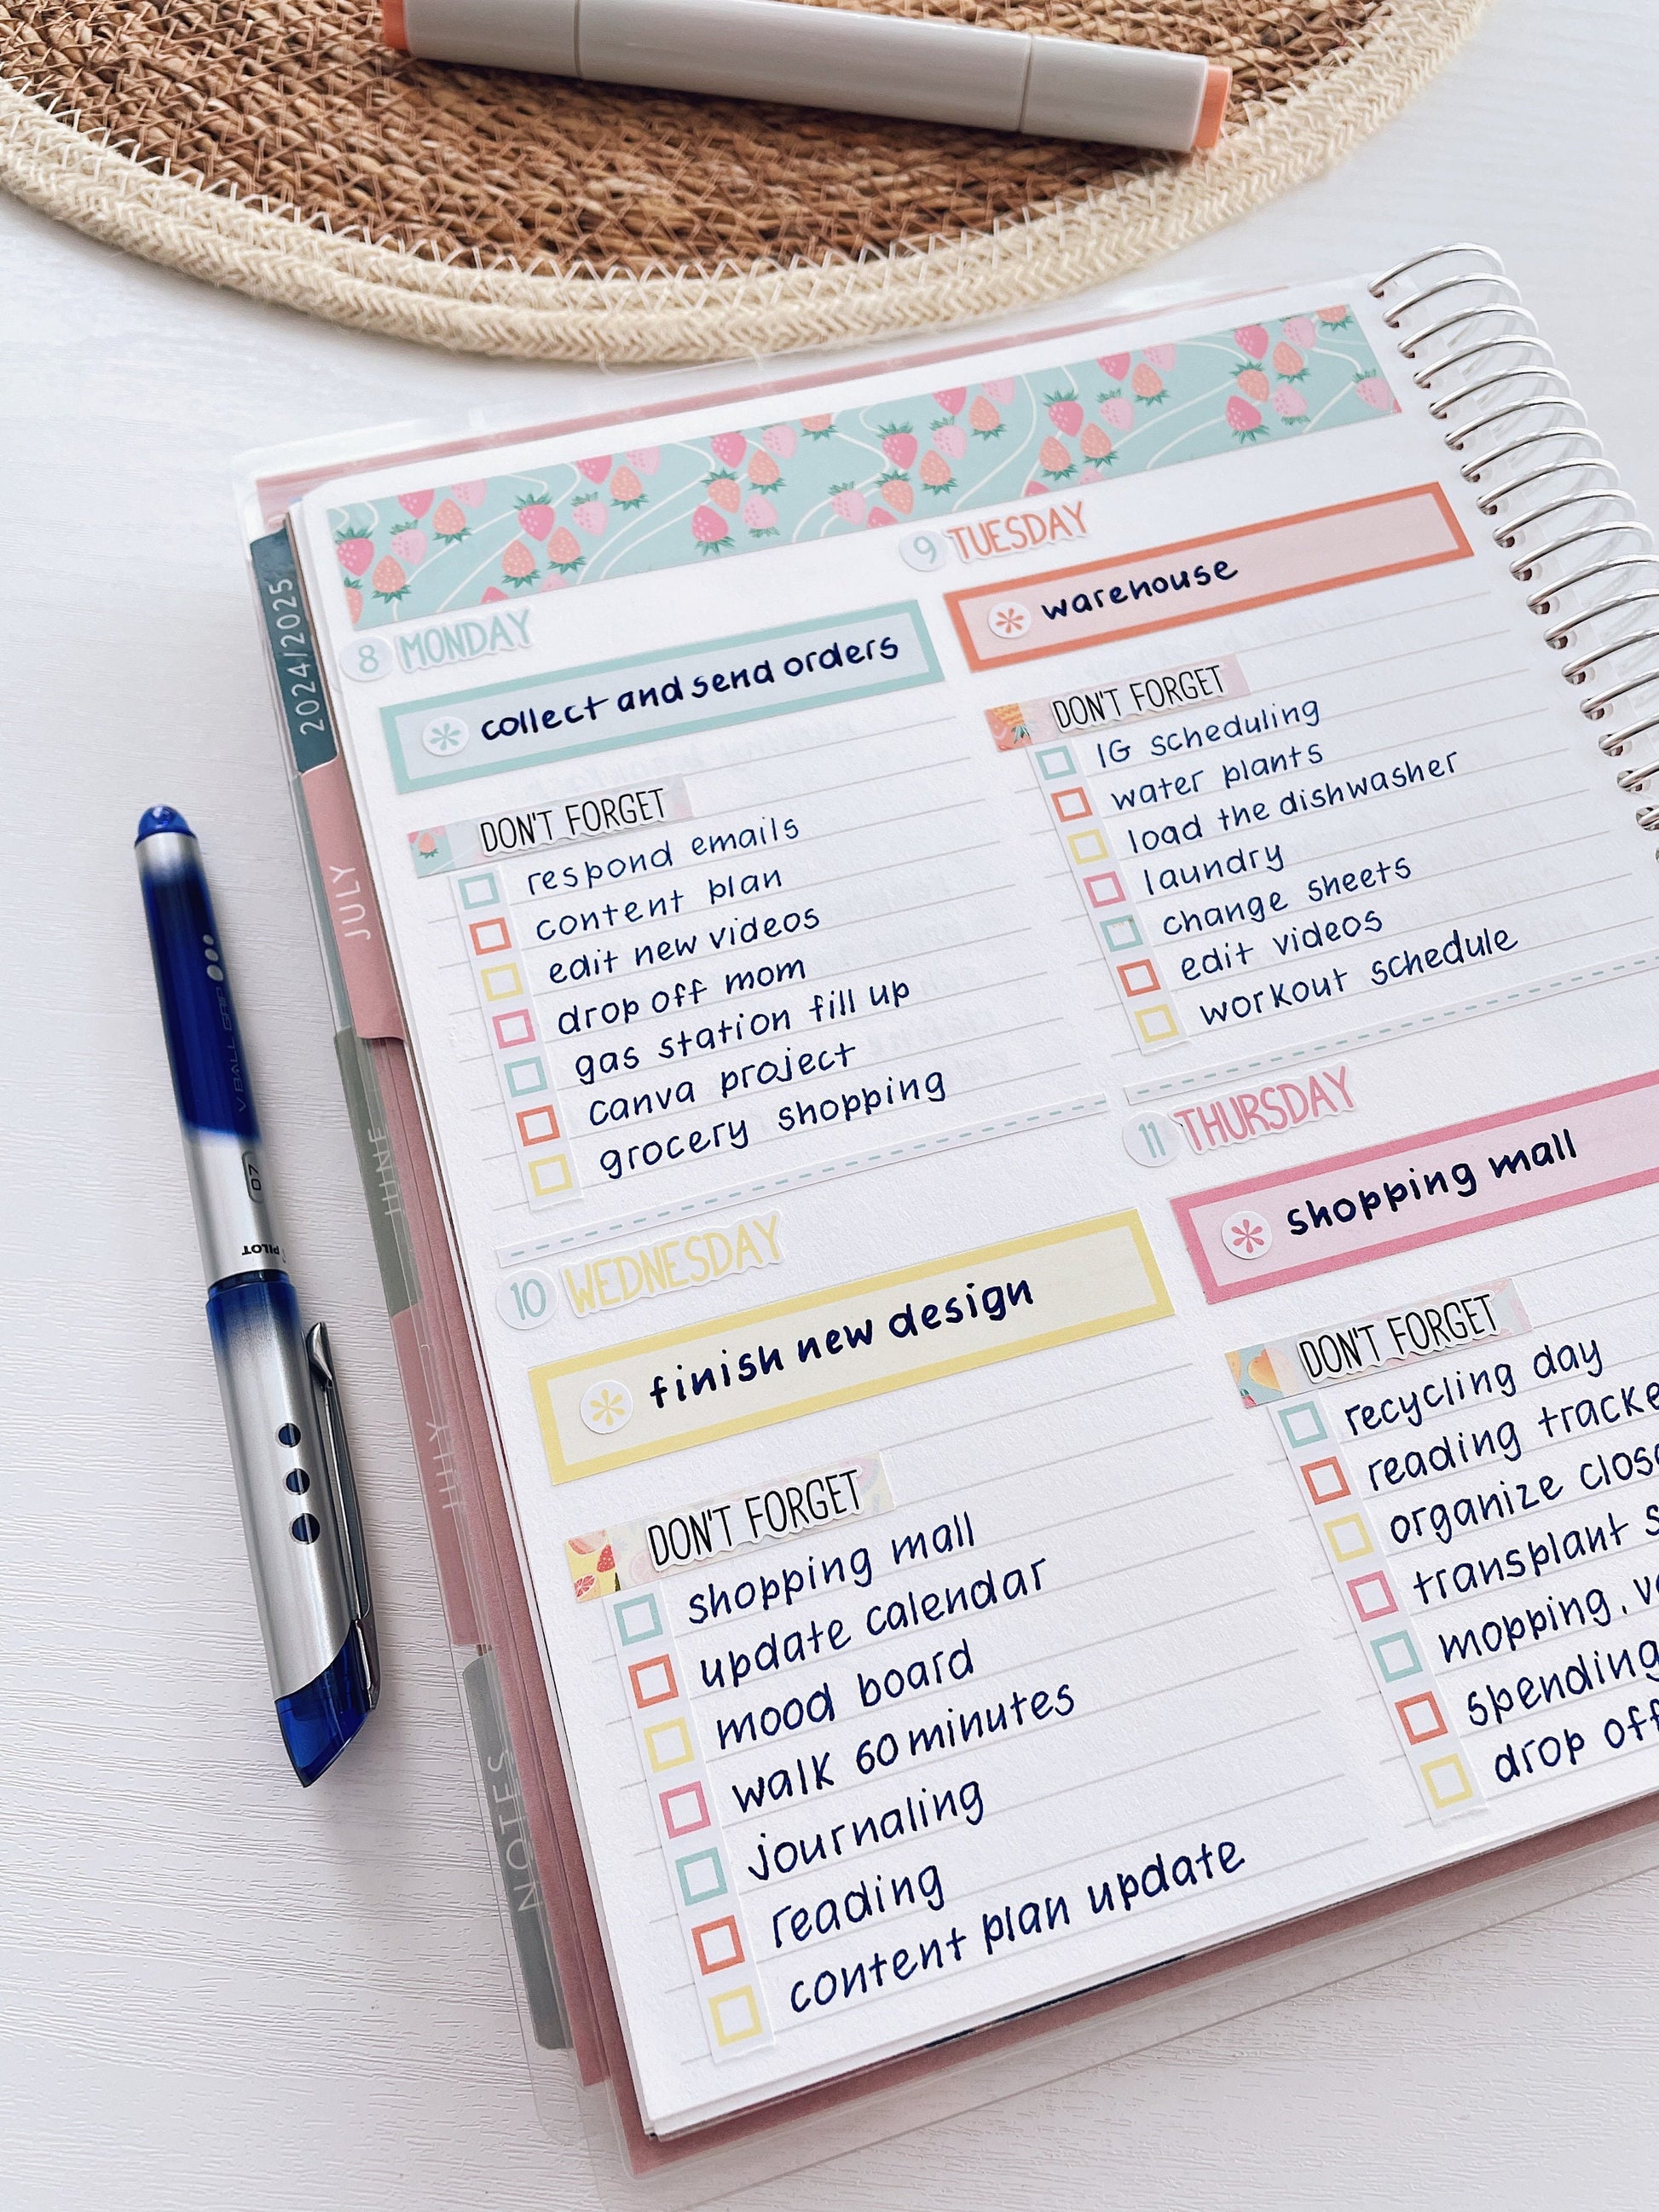 8 MONDAY
collect and send orders
DON'T FORGET
respond emails
content plan
edit new videos
drop off mom
gas station fill up
canva project
grocery shopping
9 TUESDAY
warehouse
DON'T FORGET
IG scheduling
water plants
load the dishwasher
laundry
change sheets
edit videos
workout schedule
10 WEDNESDAY
finish new design
DON'T FORGET
shopping mall
update calendar
mood board
walk 60 minutes
journaling
reading
content plan update
11 THURSDAY
shopping mall
DON'T FORGET
recycling day
reading
organize
transplant
mopping,
spending
drop off
2024/2025
JULY
JUNE
JULY
NOTES
V BALL GRIP
07
PILOT